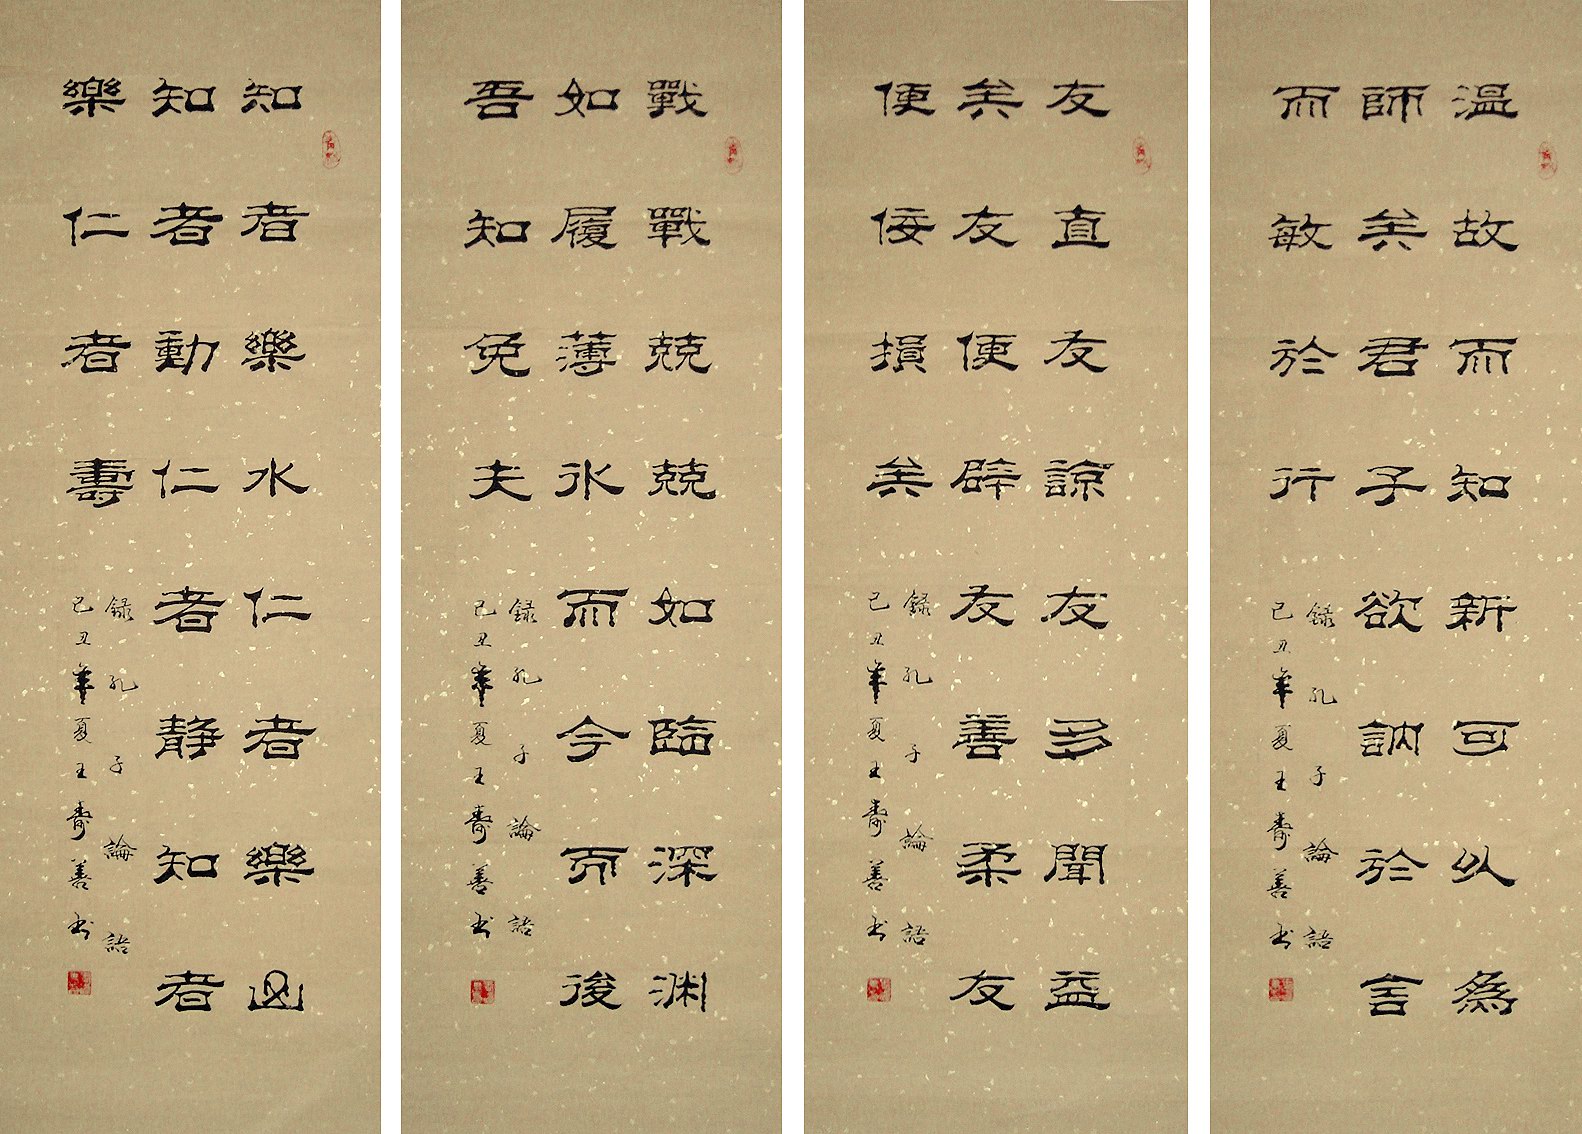 温故而知新可以為
師矣君子欲訥於言
而敏於行
録孔子論語
己丑年夏王壽善书
友直友諒友多聞益
矣友便辟友善柔友
便佞損矣
録孔子論語
己丑年夏王壽善书
戰戰兢兢如臨深渊
如履薄氷而今而後
吾知免夫
録孔子論語
己丑年夏王壽善书
知者樂水仁者樂山
知者動仁者静知者
樂仁者壽
録孔子論語
己丑年夏王壽善书